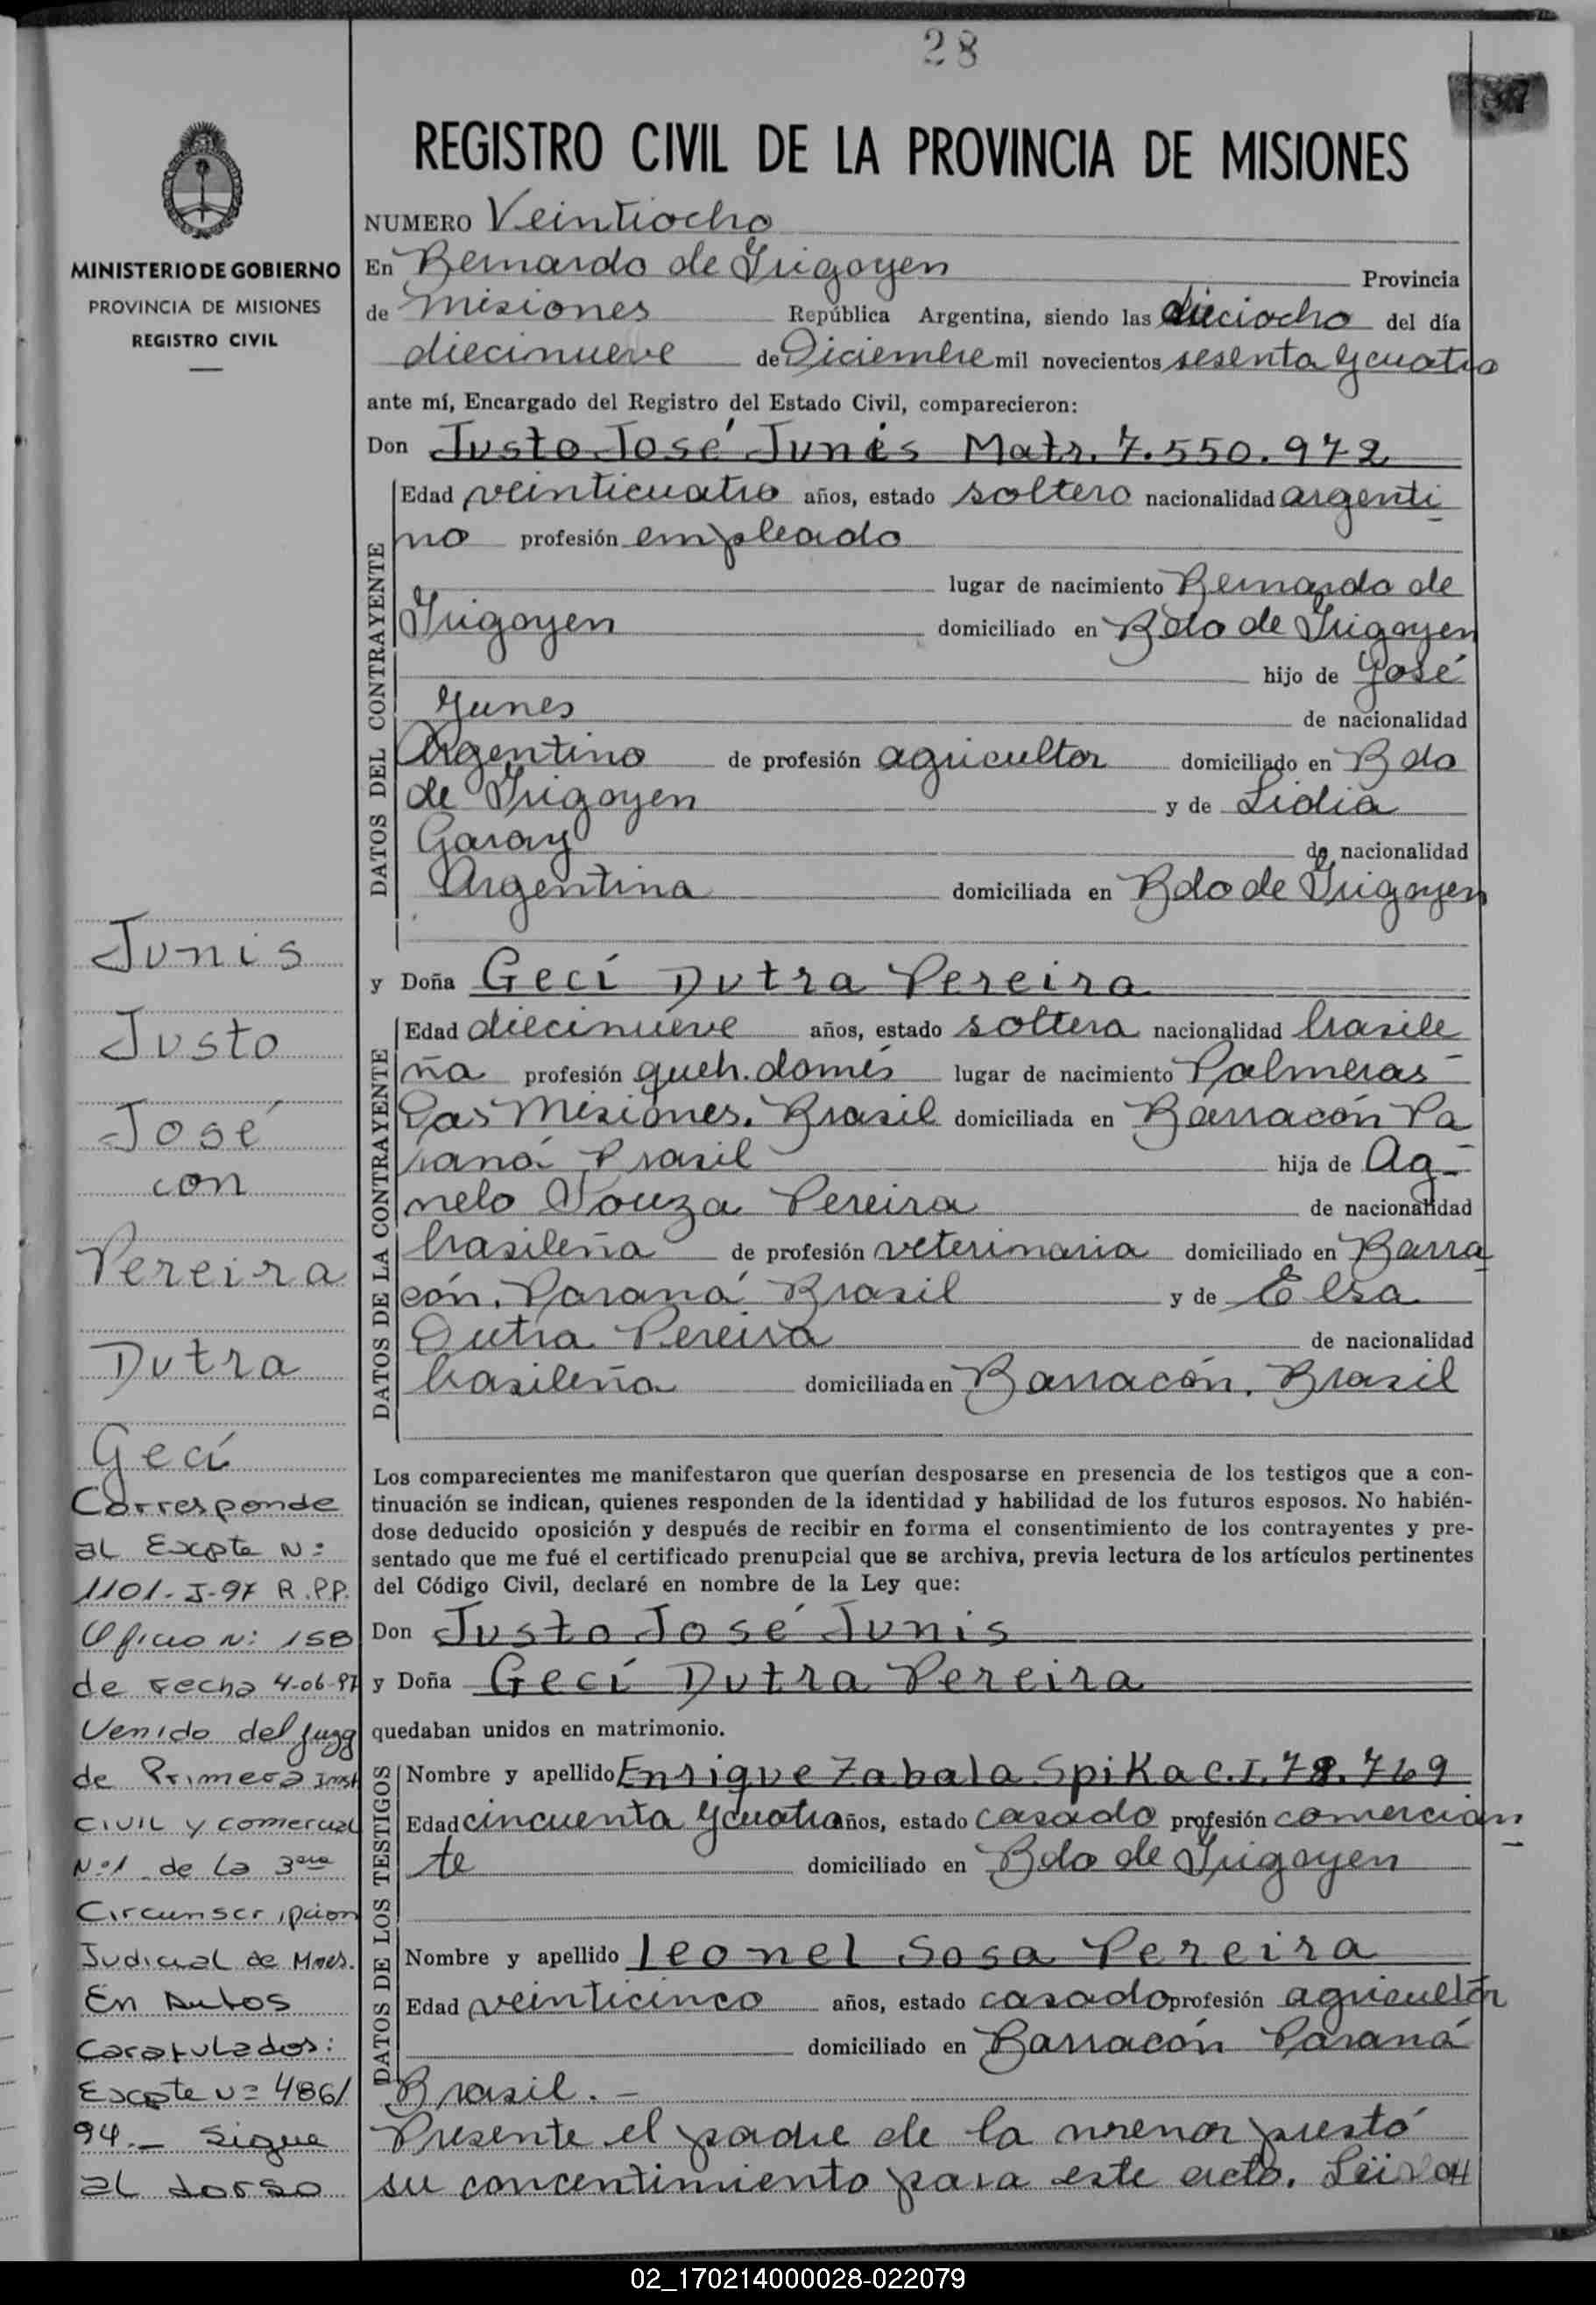 28
37
REGISTRO CIVIL DE LA PROVINCIA DE MISIONES
MINISTERIO DE GOBIERNO
PROVINCIA DE MISIONES
REGISTRO CIVIL
NUMERO Veintiocho
En Bernardo de Irigoyen Provincia
de Misiones República Argentina, siendo las dieciocho del día
diecinueve de Diciembre mil novecientos sesenta y cuatro
ante mí, Encargado del Registro del Estado Civil, comparecieron:
Don Justo José Junis Matr. 7.550.972
DATOS DEL CONTRAYENTE
Edad veinticuatro años, estado soltero nacionalidad argenti
no profesión empleado
lugar de nacimiento Bernardo de
Irigoyen domiciliado en Bdo de Irigoyen
hijo de José
Yunes de nacionalidad
Argentino de profesión agricultor domiciliado en Bdo
de Irigoyen y de Lidia
Garay de nacionalidad
Argentina domiciliada en Bdo de Irigoyen
y Doña Gecí Dutra Pereira
DATOS DE LA CONTRAYENTE
Edad diecinueve años, estado soltera nacionalidad brasile
ña profesión queh. domés lugar de nacimiento Palmeras
das Misiones. Brasil domiciliada en Barracón Pa
raná Brasil hija de Ag-
nelo Souza Pereira de nacionalidad
brasileña de profesión veterinaria domiciliado en Barra
cón. Paraná Brasil y de Elsa
Dutra Pereira de nacionalidad
brasileña domiciliada en Barracón. Brasil
Los comparecientes me manifestaron que querían desposarse en presencia de los testigos que a con-
tinuación se indican, quienes responden de la identidad y habilidad de los futuros esposos. No habién-
dose deducido oposición y después de recibir en forma el consentimiento de los contrayentes y pre-
sentado que me fué el certificado prenupcial que se archiva, previa lectura de los artículos pertinentes
del Código Civil, declaré en nombre de la Ley que:
Don Justo José Junis
y Doña Gecí Dutra Pereira
quedaban unidos en matrimonio.
DATOS DE LOS TESTIGOS
Nombre y apellido Enrique Zabala Spika C.I. 78.769
Edad cincuenta y cuatro años, estado casado profesión comercian
te domiciliado en Bdo de Irigoyen
Nombre y apellido Leonel Sosa Pereira
Edad veinticinco años, estado casado profesión agricultor
domiciliado en Barracón Paraná
Brasil.-
Presente el padre de la menor prestó
su concentimiento para este acto. Leída
Junis
Justo
José
con
Pereira
Dutra
Gecí
Corresponde
al Expte N:
1101-J-97 R.P.P.
Oficio N: 158
de Fecha 4-06-97
Venido del Juzg
de Primera Inst
Civil y comercial
Nº1 de la 3era
Circunscripcion
Judicial de Mnes.
En Autos
Caratulados:
Expte Nº 486/
94.- Sigue
al dorso
02_170214000028-022079